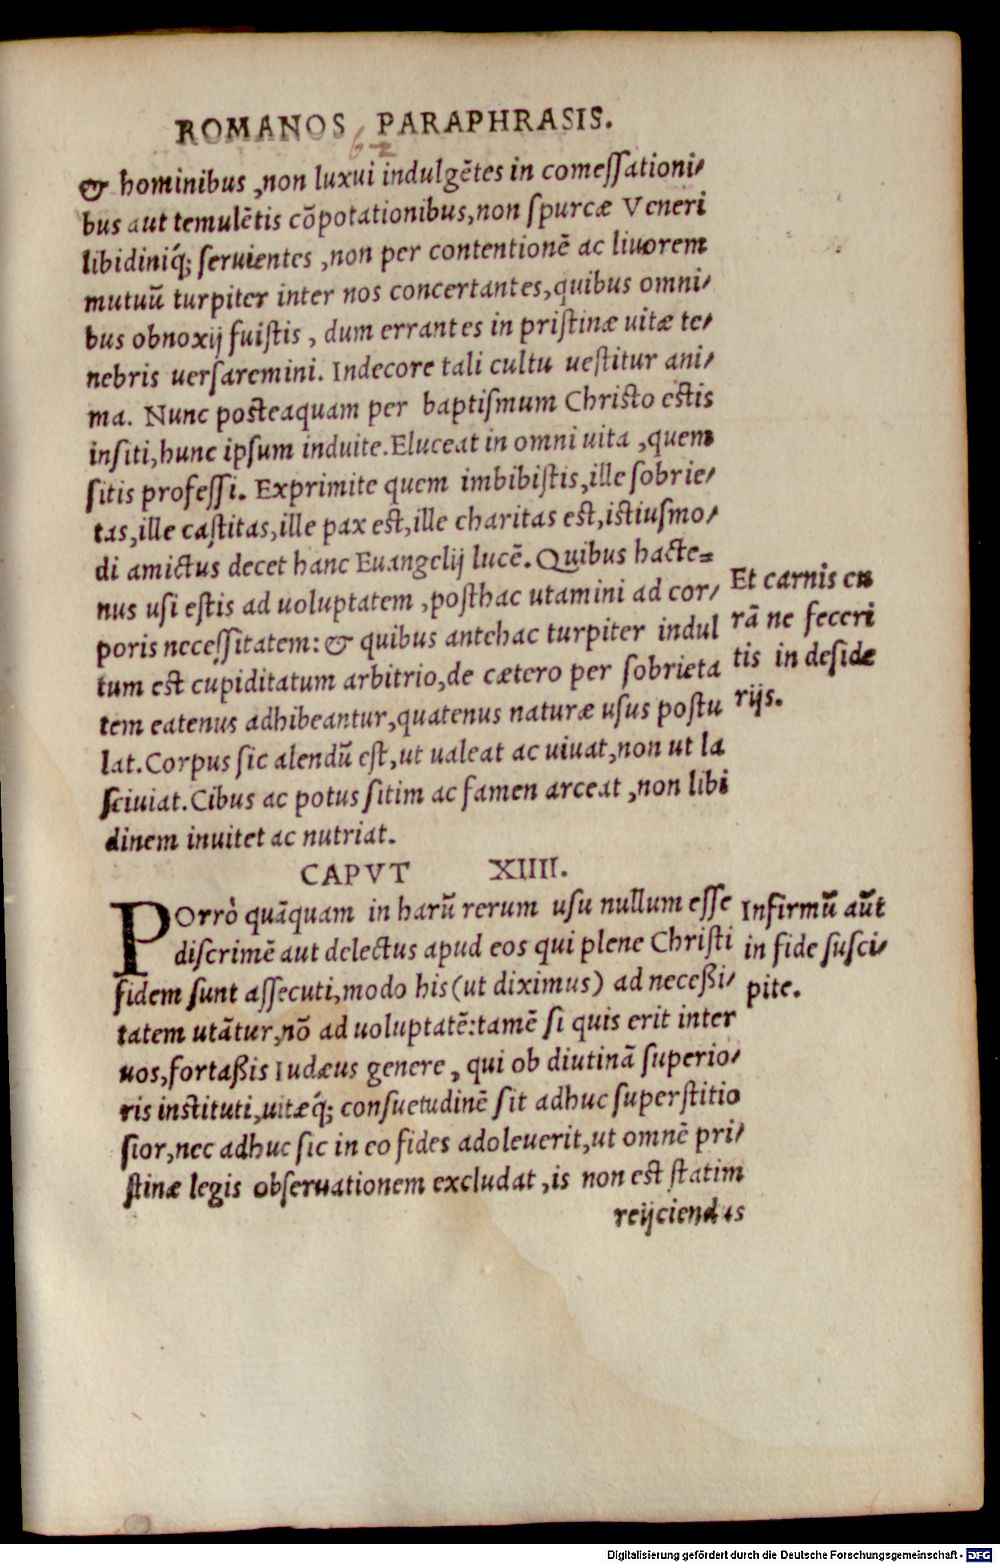 ROMANOS PARAPHRASIS.
62
& hominibus, non luxui indulgētes in comeſſationi-
bus aut temulētis cōpotationibus, non ſpurcæ Veneri
libidiniq́; ſeruientes, non per contentionē ac liuorem
mutuū turpiter inter nos concertantes, quibus omni-
bus obnoxij fuiſtis, dum errantes in priſtinæ uitæ te-
nebris uerſaremini. Indecore tali cultu ueſtitur ani-
ma. Nunc poſteaquam per baptiſmum Chriſto eſtis
inſiti, hunc ipſum induite. Eluceat in omni uita, quem
ſitis profeſſi. Exprimite quem imbibiſtis, ille ſobrie-
tas, ille caſtitas, ille pax eſt, ille charitas eſt, iſtiuſmo-
di amictus decet hanc Euangelij lucē. Quibus hacte=
nus uſi eſtis ad uoluptatem, poſthac utamini ad cor-
poris neceſſitatem: & quibus antehac turpiter indul
tum eſt cupiditatum arbitrio, de cætero per ſobrieta
tem eatenus adhibeantur, quatenus naturæ uſus poſtu
lat. Corpus ſic alendū eſt, ut ualeat ac uiuat, non ut la
ſciuiat. Cibus ac potus ſitim ac famen arceat, non libi
dinem inuitet ac nutriat.
Et carnis cu
rā ne feceri
tis in deſide
rijs.
CAPVT XIIII.
POrrò quāquam in harū rerum uſu nullum eſſe
diſcrimē aut delectus apud eos qui plene Chriſti
fidem ſunt aſſecuti, modo his (ut diximus) ad neceßi-
tatem utātur, nō ad uoluptatē: tamē ſi quis erit inter
uos, fortaßis Iudæus genere, qui ob diutinā ſuperio-
ris inſtituti, uitæq́; conſuetudinē ſit adhuc ſuperſtitio
ſior, nec adhuc ſic in eo fides adoleuerit, ut omnē pri-
ſtinæ legis obſeruationem excludat, is non eſt ſtatim
reijciendus
Infirmū aūt
in fide ſuſci-
pite.
Digitalisierung gefördert durch die Deutsche Forschungsgemeinschaft - DFG